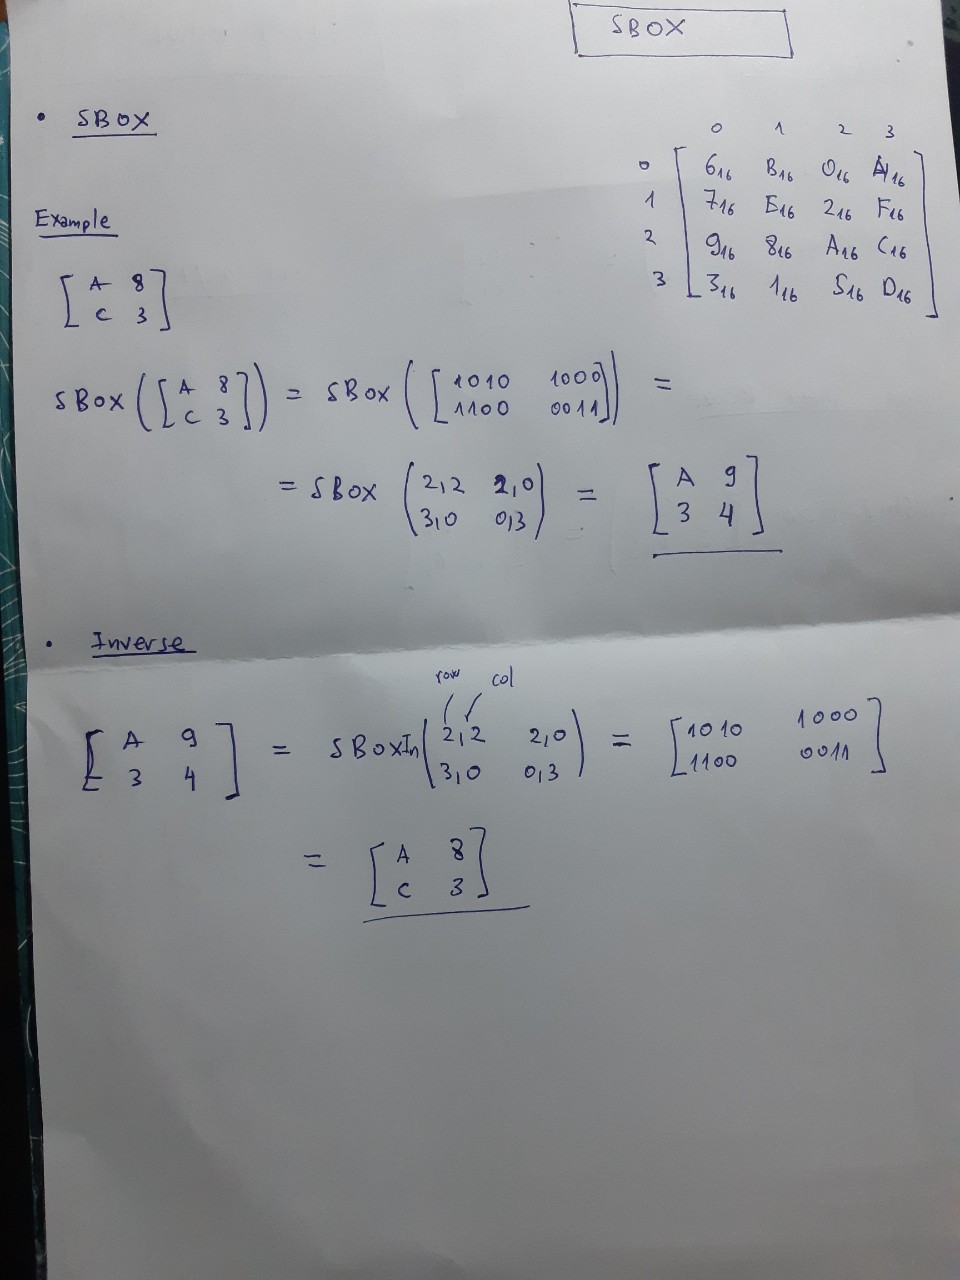 SBOX
• SBOX
0 1 2 3
0 [ 6₁₆ B₁₆ 0₁₆ 4₁₆ ]
1 [ 7₁₆ E₁₆ 2₁₆ F₁₆ ]
2 [ 9₁₆ 8₁₆ A₁₆ C₁₆ ]
3 [ 3₁₆ 1₁₆ 5₁₆ D₁₆ ]
Example
[ A 8 ]
[ C 3 ]
SBox ( [ A 8 ; C 3 ] ) = SBox ( [ 1010 1000 ; 1100 0011 ] ) =
= SBox ( 2,2 2,0 ; 3,0 0,3 ) = [ A 9 ; 3 4 ]
• Inverse
row col
[ A 9 ; 3 4 ] = SBoxIn ( 2,2 2,0 ; 3,0 0,3 ) = [ 1010 1000 ; 1100 0011 ]
= [ A 8 ; C 3 ]